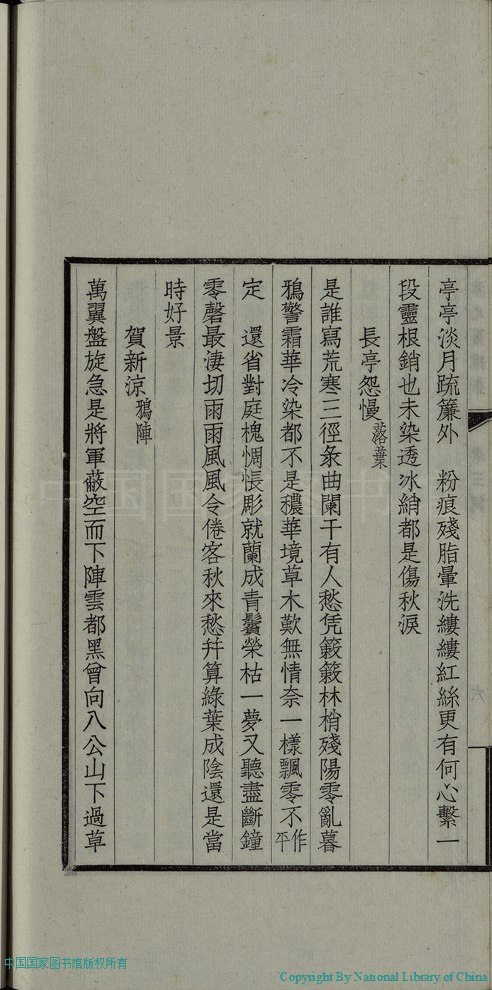 亭亭淡月疏簾外　粉痕殘脂暈洗縷縷紅絲更有何心繫一
段靈根銷也未染透冰綃都是傷秋淚
長亭怨慢落葉
是誰寫荒寒三徑彔曲闌干有人愁凭簌簌林梢殘陽零亂暮
鴉警霜華冷染都不是穠華境草木歎無情奈一樣飄零不作平
定　還省對庭槐惆悵彫就蘭成青鬢榮枯一夢又聽盡斷鐘
零磬最淒切雨雨風風令倦客秋來愁幷算綠葉成陰還是當
時好景
賀新涼鴉陣
萬翼盤旋急是將軍蔽空而下陣雲都黑曾向八公山下過草
中国国家图书馆版权所有
Copyright By National Library of China